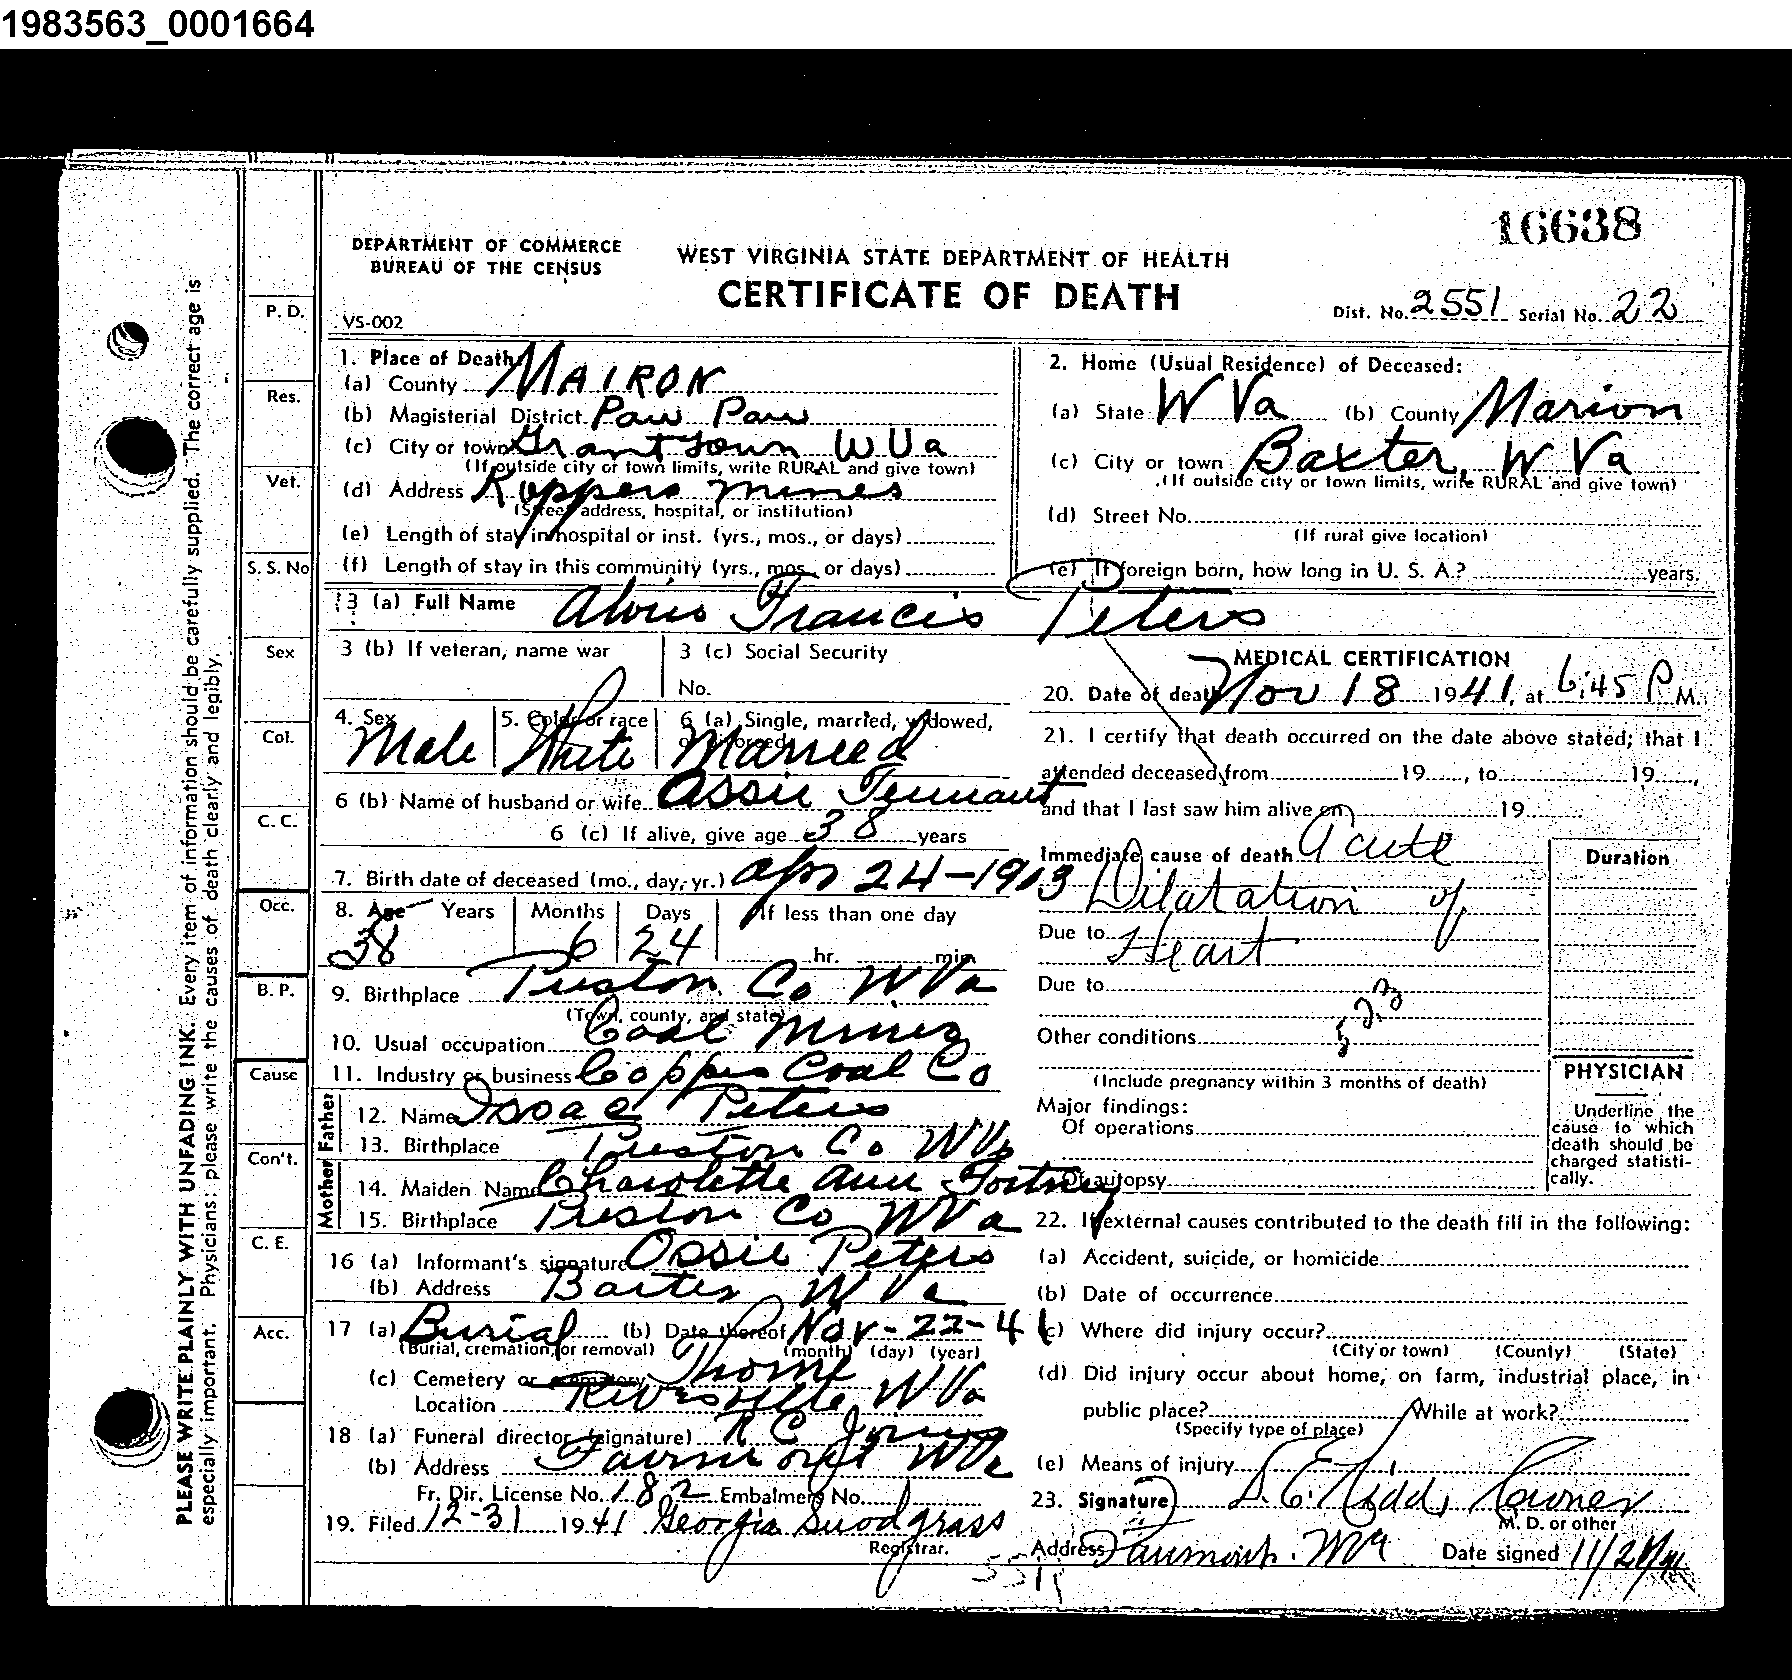 1983563_0001664
16638
DEPARTMENT OF COMMERCE
BUREAU OF THE CENSUS
WEST VIRGINIA STATE DEPARTMENT OF HEALTH
CERTIFICATE OF DEATH
VS-002
Dist. No. 2551 Serial No. 22
PLEASE WRITE PLAINLY WITH UNFADING INK. Every item of information should be carefully supplied. The correct age is
especially important. Physicians: please write the causes of death clearly and legibly.
P. D.
Res.
Vet.
S. S. No
Sex
Col.
C. C.
Occ.
B. P.
Cause
Con't.
C. E.
Acc.
1. Place of Death
(a) County MAIRON
(b) Magisterial District Paw Paw
(c) City or town Grant town W Va
(If outside city or town limits, write RURAL and give town)
(d) Address Koppers mines
(Street address, hospital, or institution)
(e) Length of stay in hospital or inst. (yrs., mos., or days)
(f) Length of stay in this community (yrs., mos., or days)
2. Home (Usual Residence) of Deceased:
(a) State W Va (b) County Marion
(c) City or town Baxter, W Va
(If outside city or town limits, write RURAL and give town)
(d) Street No.
(If rural give location)
(e) If foreign born, how long in U. S. A.? years.
3 (a) Full Name Francis Peters
3 (b) If veteran, name war
3 (c) Social Security
No.
4. Sex Male
5. Color or race White
6 (a) Single, married, widowed,
or divorced Married
6 (b) Name of husband or wife Ossie Tennant
6 (c) If alive, give age 38 years
7. Birth date of deceased (mo., day, yr.) Apr 24-1903
8. Age Years Months Days If less than one day
38 6 24 hr. min.
9. Birthplace Preston Co W.Va
(Town, county, and state)
10. Usual occupation Coal Miner
11. Industry or business Coppers Coal Co
Father
12. Name Isaac Peters
13. Birthplace Preston Co W Va
Mother
14. Maiden Name Charolette Ann Fortney
15. Birthplace Preston Co W Va
16 (a) Informant's signature Ossie Peters
(b) Address Baxter W Va
17 (a) Burial (b) Date thereof Nov-22-41
(Burial, cremation, or removal) (month) (day) (year)
(c) Cemetery or crematory Thorne
Location Rivesville W Va
18 (a) Funeral director (signature) R C Jones
(b) Address Fairmont W Va
Fr. Dir. License No. 182 Embalmers No.
19. Filed 12-31 1941 Georgia Snodgrass
Registrar.
MEDICAL CERTIFICATION
20. Date of death Nov 18 1941, at 6:45 P M.
21. I certify that death occurred on the date above stated; that I
attended deceased from 19 , to 19 ,
and that I last saw him alive on 19
Immediate cause of death Acute
Dilatation of
Due to Heart
Due to
Other conditions
(Include pregnancy within 3 months of death)
Major findings:
Of operations
Of autopsy
Duration
PHYSICIAN
Underline the
cause to which
death should be
charged statisti-
cally.
22. If external causes contributed to the death fill in the following:
(a) Accident, suicide, or homicide
(b) Date of occurrence
(c) Where did injury occur?
(City or town) (County) (State)
(d) Did injury occur about home, on farm, industrial place, in
public place? While at work?
(Specify type of place)
(e) Means of injury
23. Signature D. E. Kidd, Coroner
M. D. or other
Address Fairmont. W Va Date signed